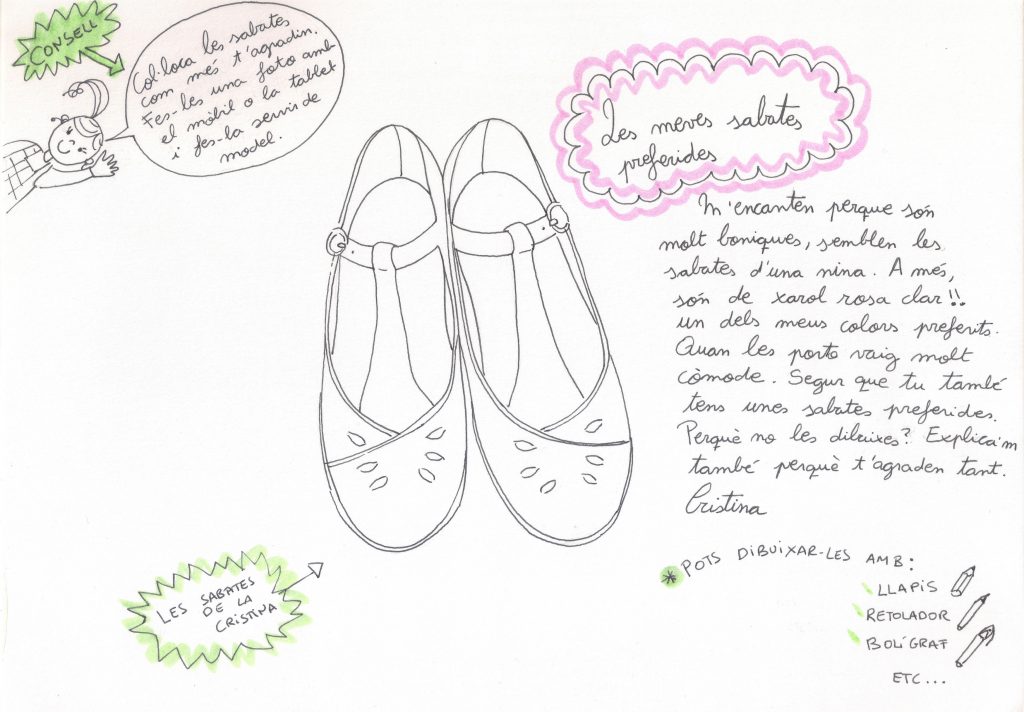 CONSELL
Col·loca les sabates
com més t'agradin.
Fes-les una foto amb
el mòbil o la tablet
i fes-la servir de
model.
Les meves sabates
preferides
M'encanten perque són
molt boniques, semblen les
sabates d'una nina. A més,
són de xarol rosa clar!!
un dels meus colors preferits.
Quan les porto vaig molt
còmode. Segur que tu també
tens unes sabates preferides.
Perquè no les dibuixes? Explica'm
també perquè t'agraden tant.
Cristina
LES SABATES
DE LA
CRISTINA
* POTS DIBUIXAR-LES AMB:
LLAPIS
RETOLADOR
BOLÍGRAF
ETC...